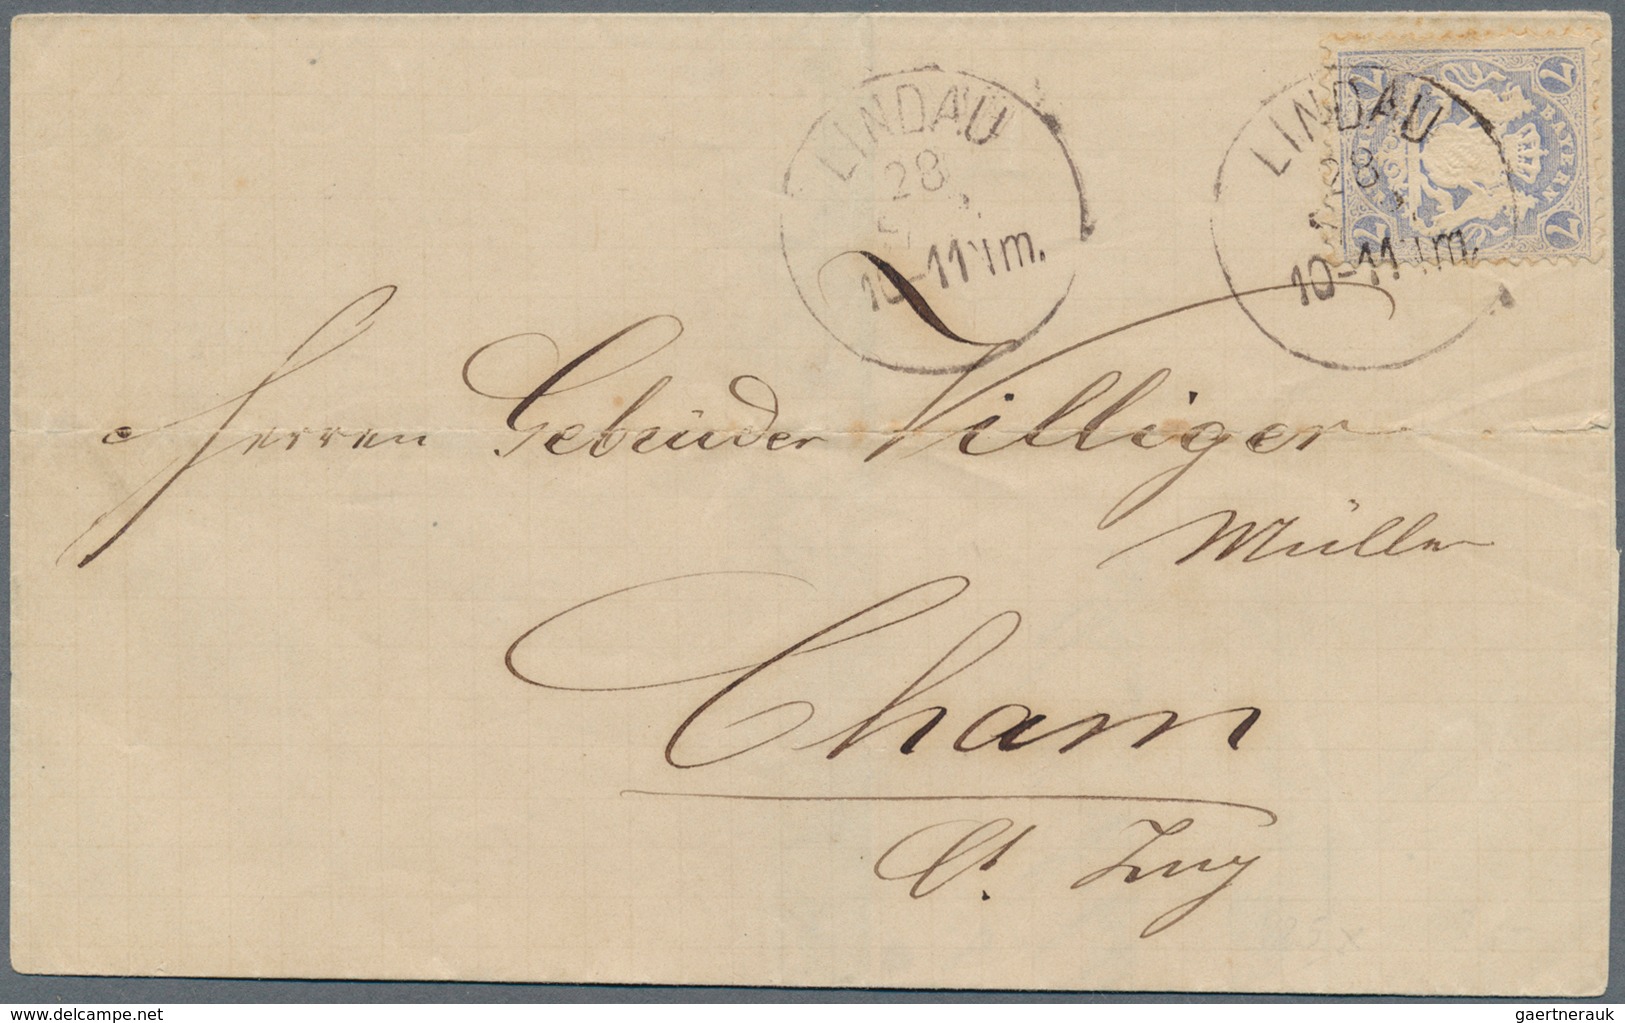 LINDAU
28
10-11 Vm.
LINDAU
28
10-11 Vm.
7 7
BAYERN
7 7
Herren Gebrüder Villiger
Müller
Cham
Ct. Zug
www.delcampe.net
gaertnerauk